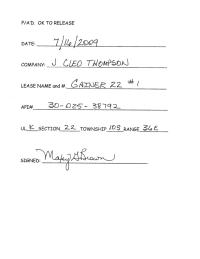 P/A'D. OK TO RELEASE
DATE: 7/16/2009
COMPANY: J CLEO THOMPSON
LEASE NAME and # GAINER 22 #1
API# 30-025-38792
UL K SECTION 22 TOWNSHIP 10S RANGE 36E
SIGNED: